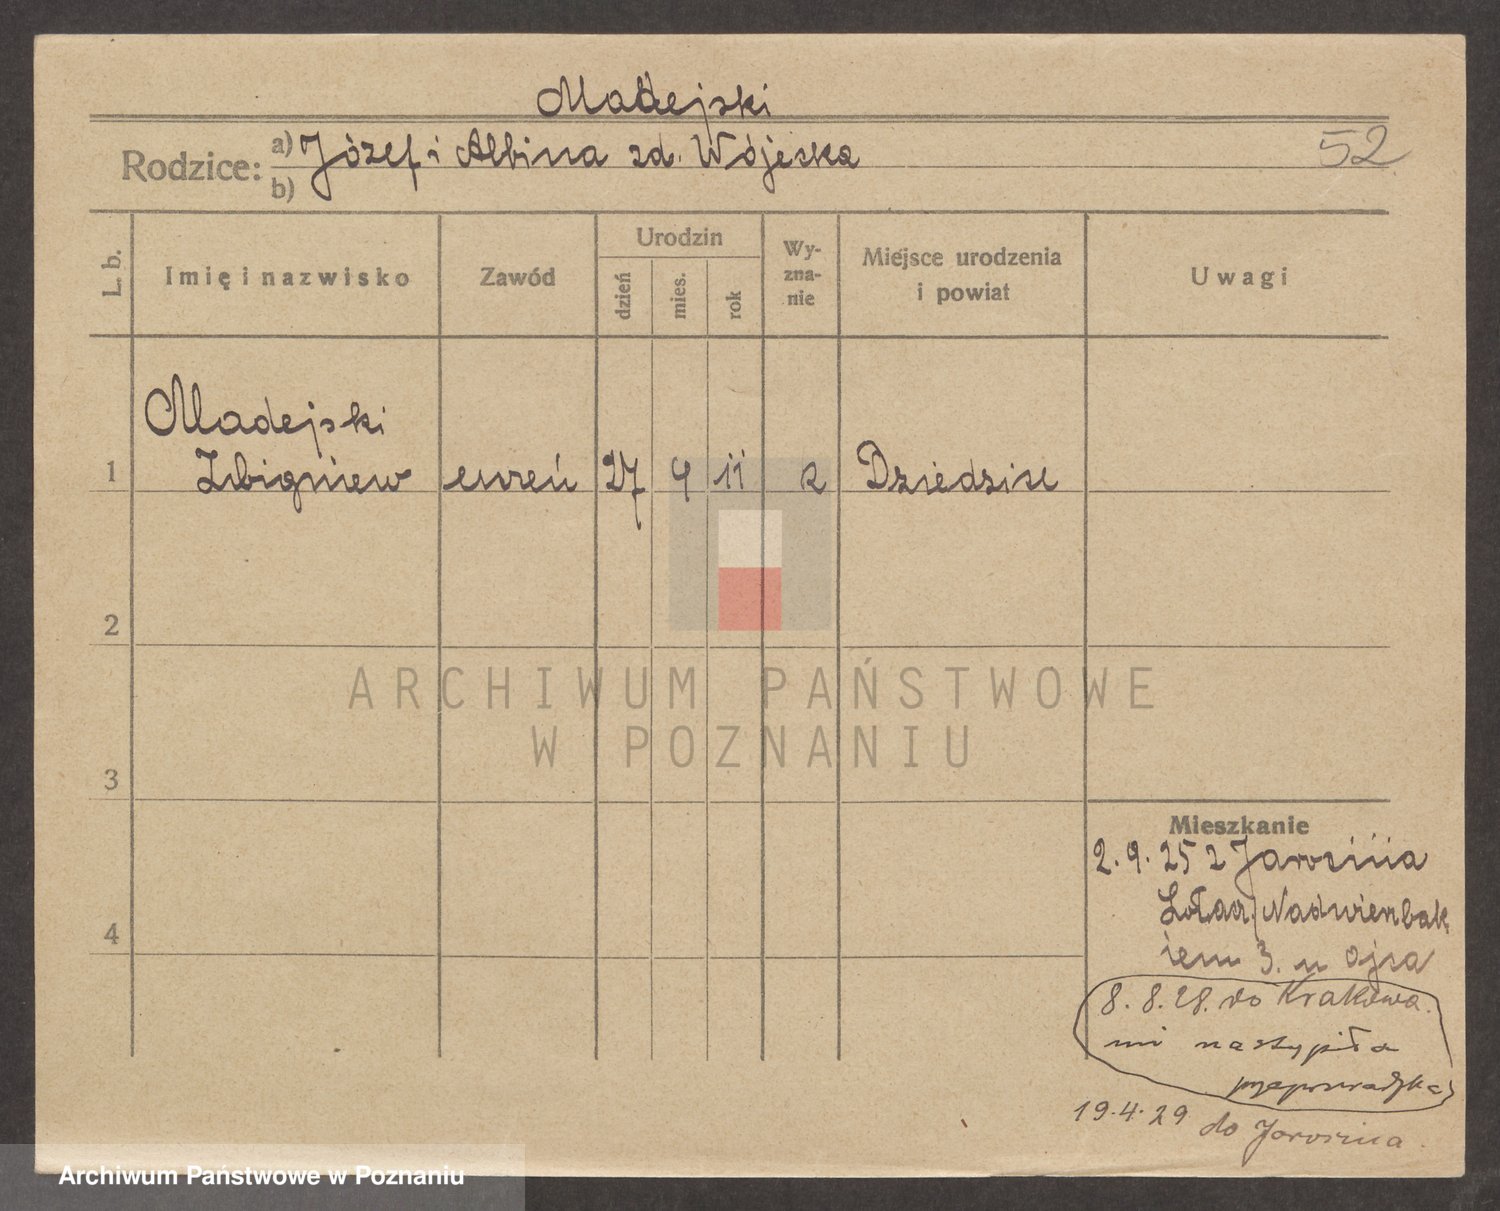 Madejski
Rodzice: a) Józef i Albina zd. Wójcska
b)
52
L. b.
Imię i nazwisko
Zawód
Urodzin
dzień
mies.
rok
Wy-
zna-
nie
Miejsce urodzenia
i powiat
Uwagi
Madejski
1 Zbigniew uczeń 27 4 11 R Dziedzice
2
ARCHIWUM PAŃSTWOWE
W POZNANIU
3
4
Mieszkanie
2.9.25 z Jarocina
3. u ojca
8.8.28. do Krakowa.
ni nastąpiła
19.4.29 do Jarocina.
Archiwum Państwowe w Poznaniu